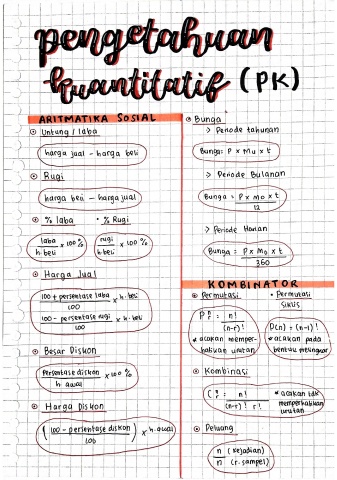 pengetahuan
kuantitatif (PK)
ARITMATIKA SOSIAL
Untung / laba
harga jual - harga beli
Rugi
harga beli - harga jual
% laba • % Rugi
laba / h. beli x 100 % rugi / h. beli x 100 %
Harga Jual
100 + persentase laba / 100 x h. beli
100 - persentase rugi / 100 x h. beli
Besar Diskon
Persentase diskon / h awal x 100 %
Harga Diskon
( 100 - persentase diskon / 100 ) x h. awal
Bunga
> Periode tahunan
Bunga = P x Mo x t
> Periode Bulanan
Bunga = P x Mo x t / 12
> Periode Harian
Bunga = P x Mo x t / 360
KOMBINATOR
Permutasi • Permutasi
siklis
P = n! / (n-r)! P(n) = (n-1)!
* acakan memper- * acakan pada
hatikan urutan bentuk melingkar
Kombinasi
C = n! / (n-r)! r! * acakan tdk
memperhatikan
urutan
Peluang
n (kejadian)
n (r. sampel)